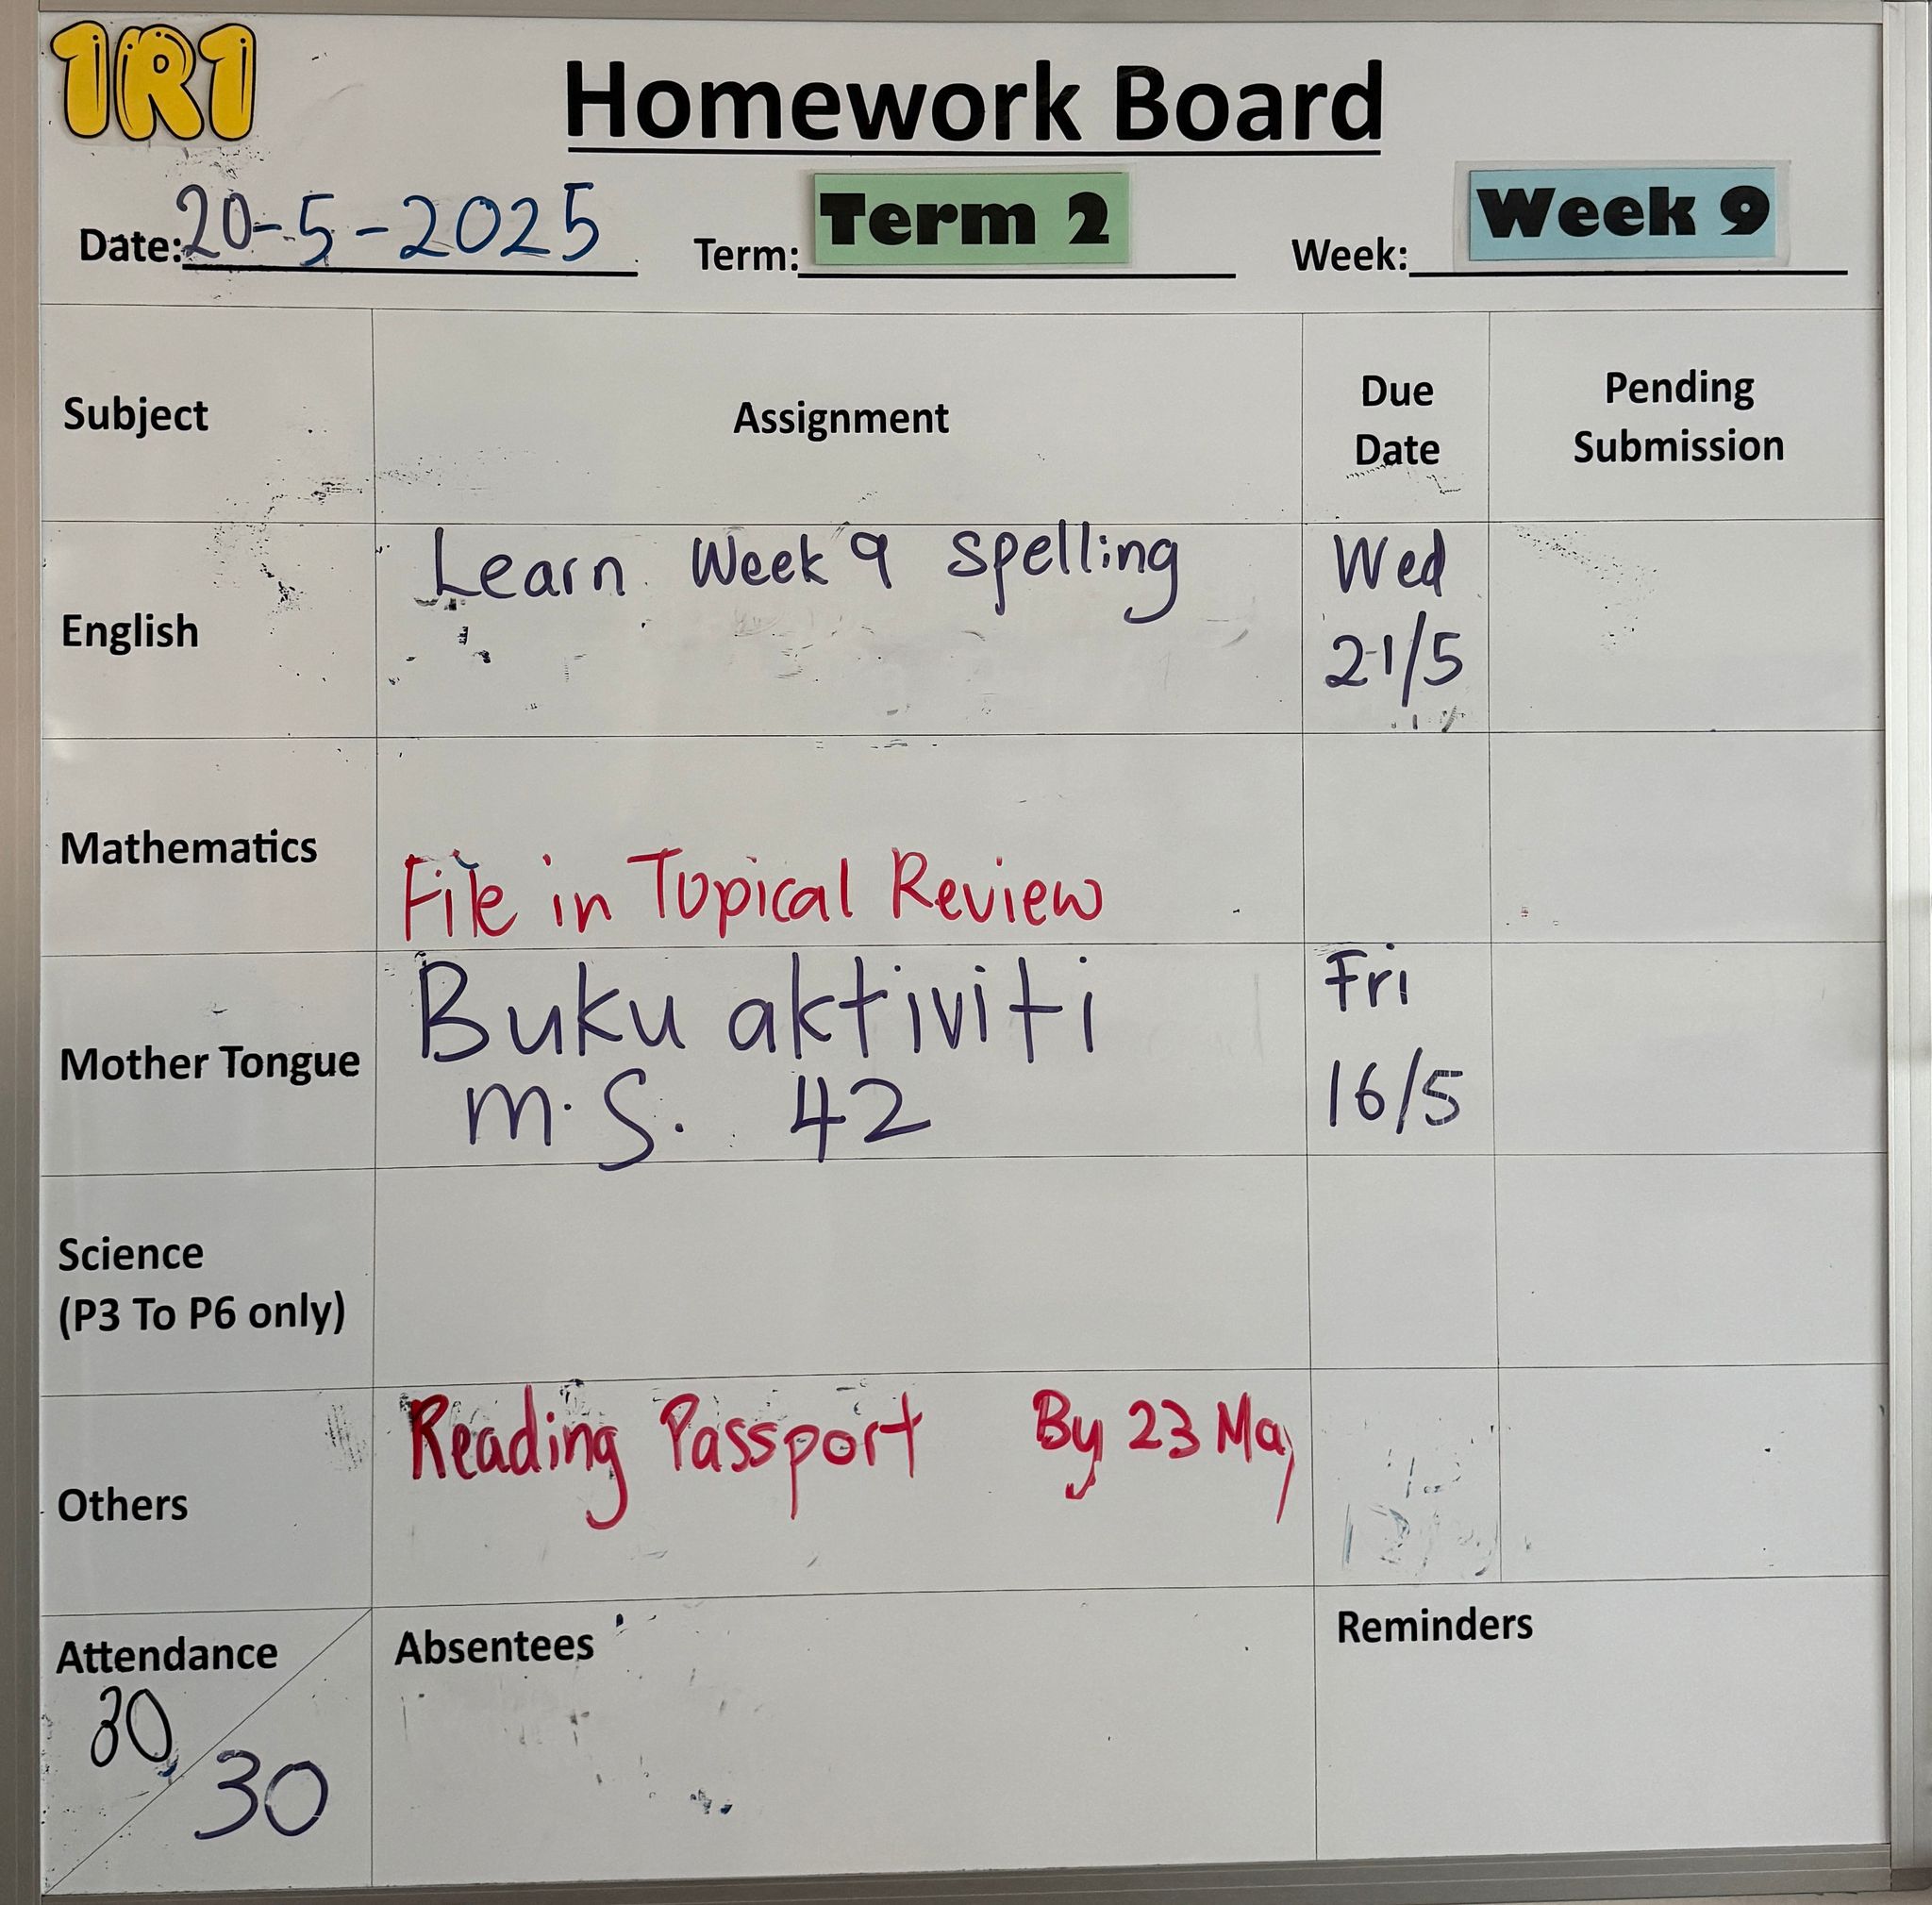 1R1
Homework Board
Date: 20-5-2025 Term: Term 2 Week: Week 9
Subject Assignment Due Date Pending Submission
English Learn Week 9 Spelling Wed 21/5
Mathematics File in Topical Review
Mother Tongue Buku aktiviti m.s. 42 Fri 16/5
Science
(P3 To P6 only)
Others Reading Passport By 23 May
Attendance Absentees Reminders
30
30